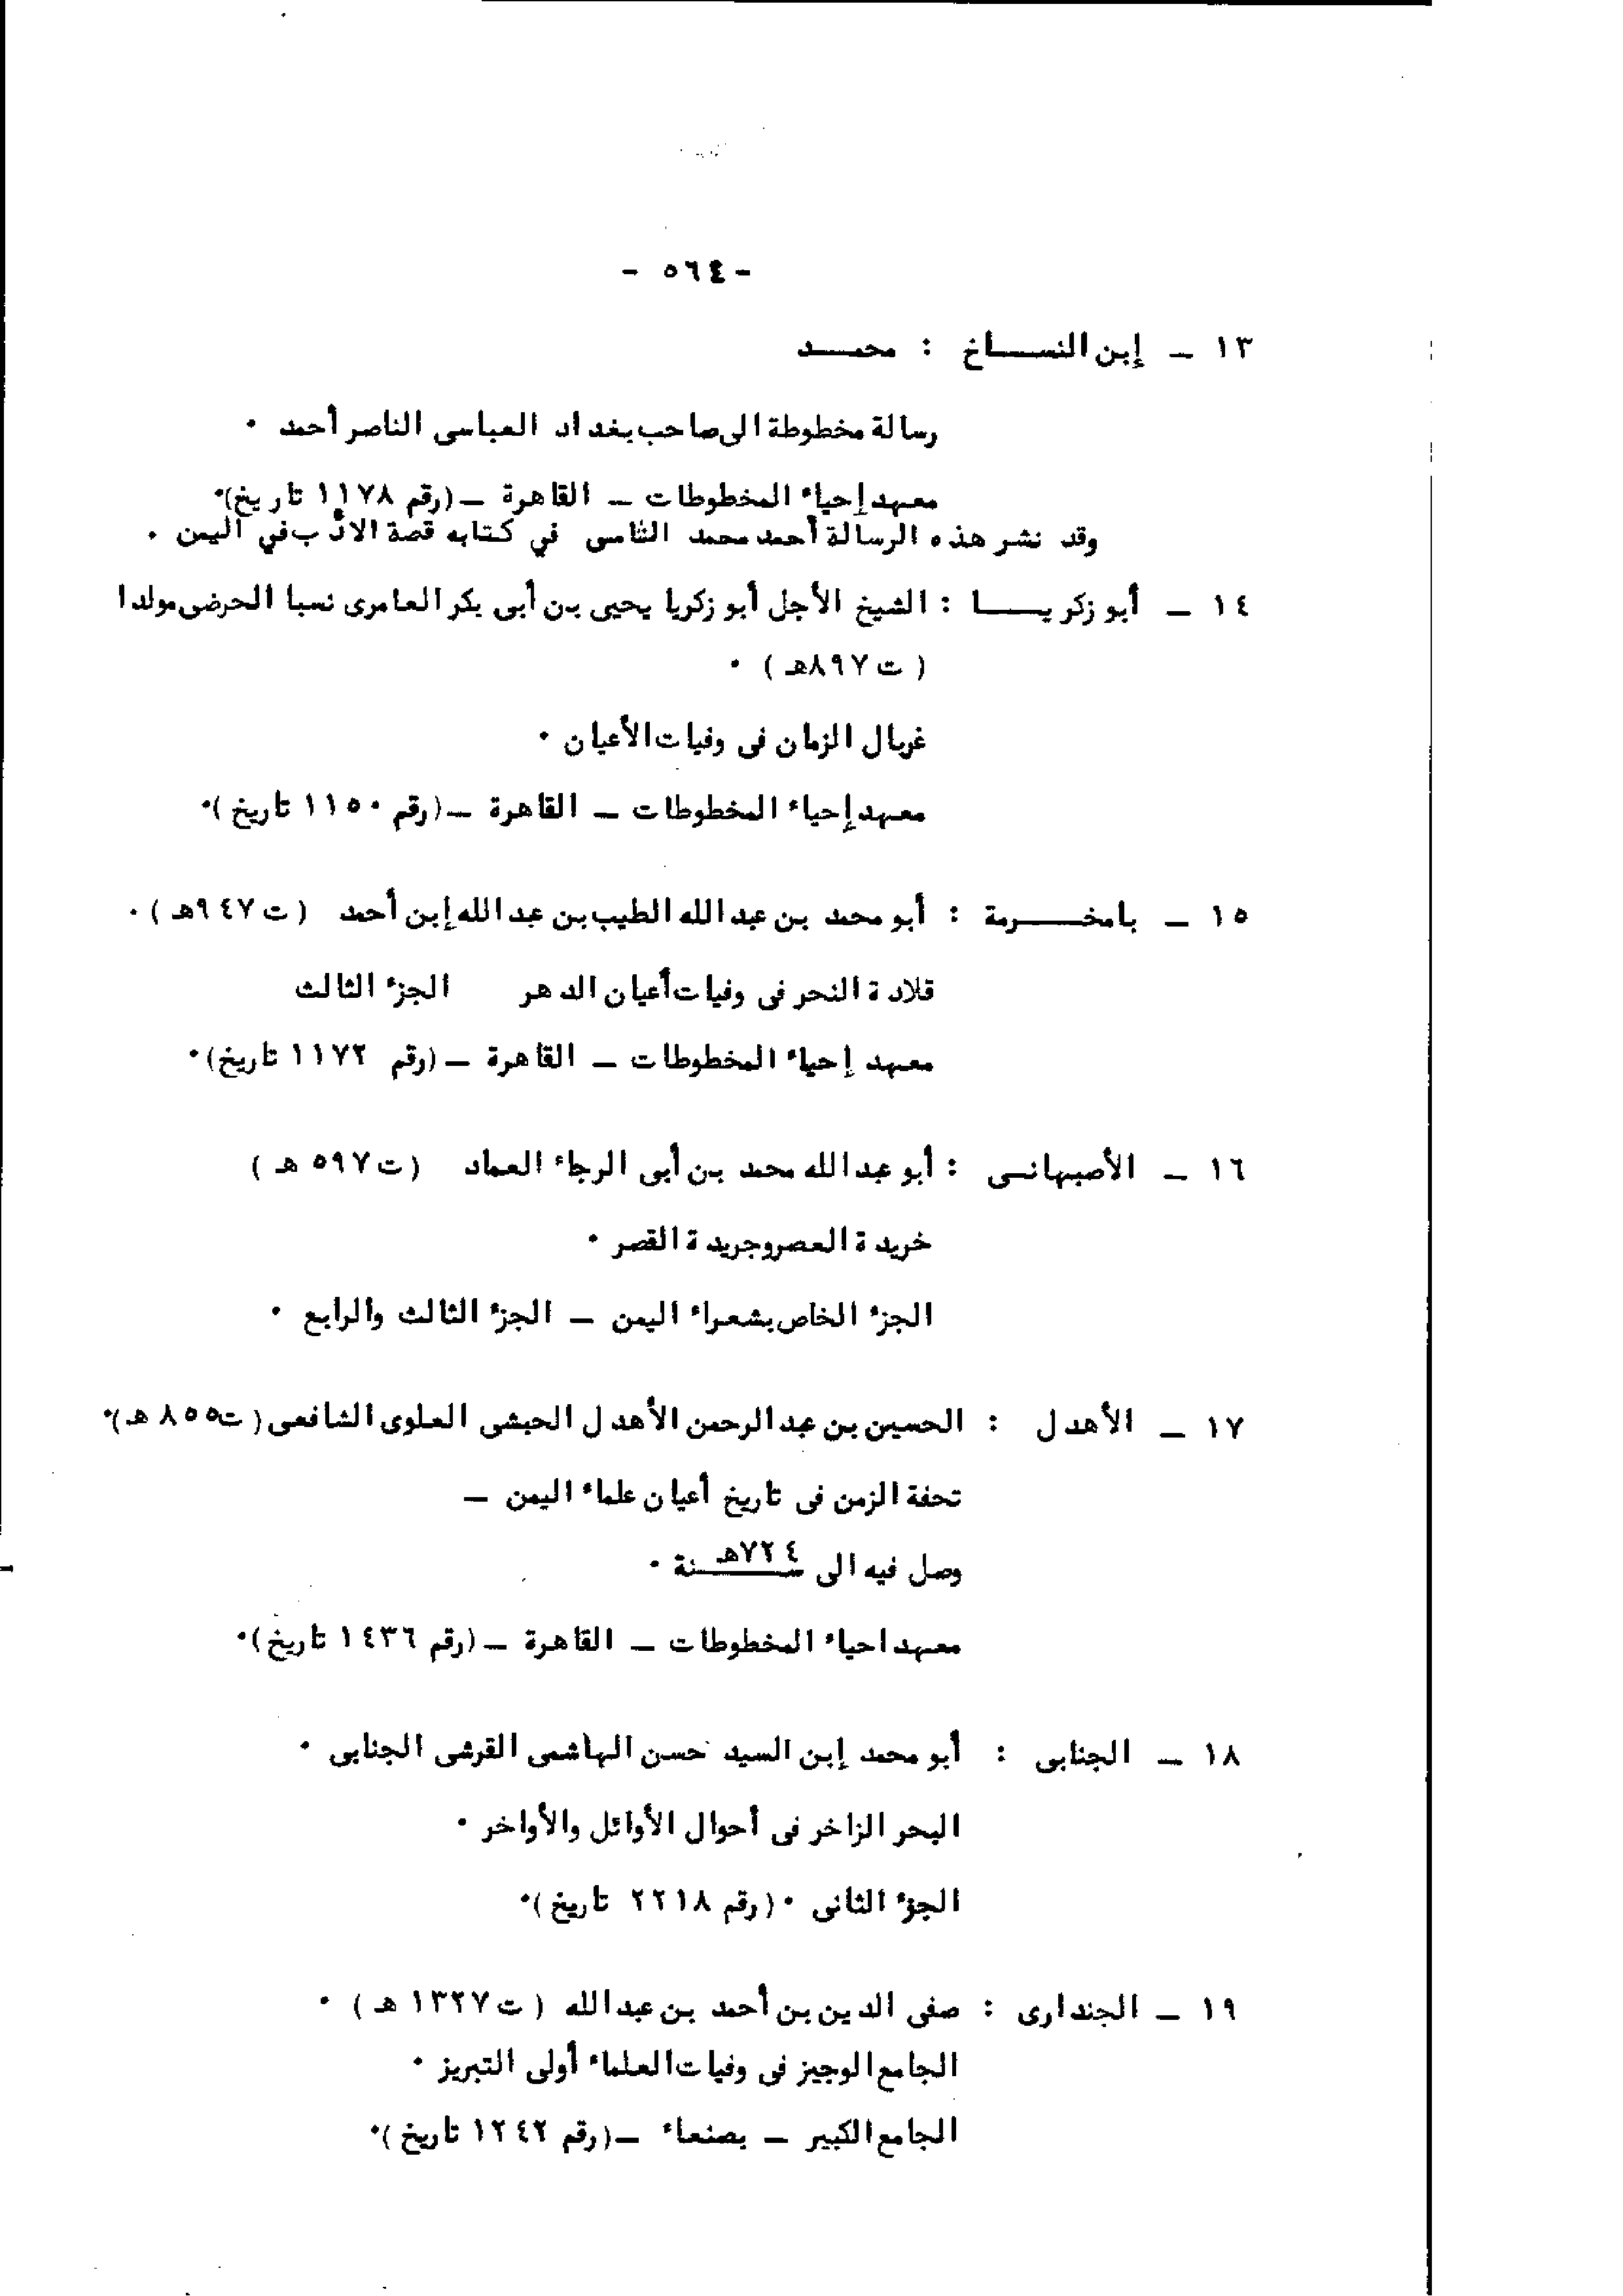 - ٥٦٤ -
١٣ ـ إبن النسـاخ : محمـد
رسالة مخطوطة الى صاحب بغداد العباسى الناصر أحمد .
معهد إحياء المخطوطات ـ القاهرة ـ (رقم ١١٧٨ تاريخ).
وقد نشر هذه الرسالة أحمد محمد الشامى في كتابه قصة الأدب في اليمن .
١٤ ـ أبو زكريـا : الشيخ الأجل أبو زكريا يحيى بن أبى بكر العامرى نسبا الحرضى مولدا
( ت ٨٩٧هـ ) .
غربال الزمان فى وفيات الأعيان .
معهد إحياء المخطوطات ـ القاهرة ـ (رقم ١١٥٠ تاريخ ).
١٥ ـ بامخـرمة : أبو محمد بن عبد الله الطيب بن عبد الله إبن أحمد ( ت ٩٤٧هـ ) .
قلادة النحر فى وفيات أعيان الدهر الجزء الثالث
معهد إحياء المخطوطات ـ القاهرة ـ (رقم ١١٧٢ تاريخ).
١٦ ـ الأصبهانـى : أبو عبد الله محمد بن أبى الرجاء العماد ( ت ٥٩٧ هـ )
خريدة العصر وجريدة القصر .
الجزء الخاص بشعراء اليمن ـ الجزء الثالث والرابع .
١٧ ـ الأهدل : الحسين بن عبد الرحمن الأهدل الحبشى العلوى الشافعى ( ت ٨٥٥ هـ).
تحفة الزمن فى تاريخ أعيان علماء اليمن ـ
وصل فيه الى سـنة ٧٢٤هـ .
معهد احياء المخطوطات ـ القاهرة ـ (رقم ١٤٣٦ تاريخ).
١٨ ـ الجنابى : أبو محمد إبن السيد حسن الهاشمى القرشى الجنابى .
البحر الزاخر فى أحوال الأوائل والأواخر .
الجزء الثانى . (رقم ٢٢١٨ تاريخ ).
١٩ ـ الجندارى : صفى الدين بن أحمد بن عبد الله ( ت ١٣٢٧ هـ ) .
الجامع الوجيز فى وفيات العلماء أولى التبريز .
الجامع الكبير ـ بصنعاء ـ (رقم ١٢٤٢ تاريخ ).